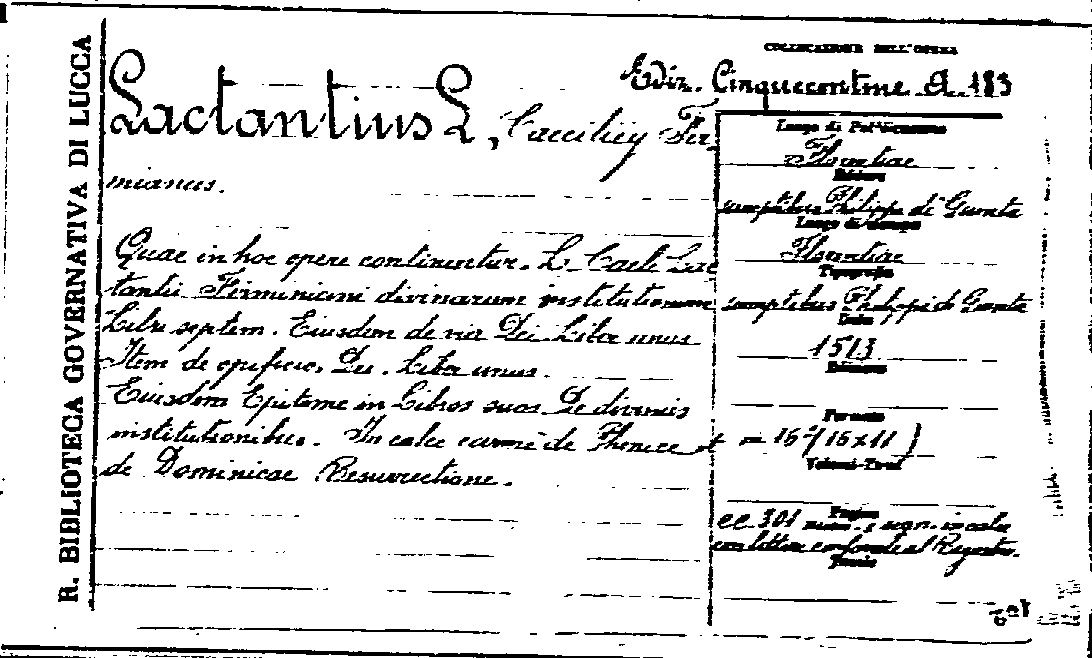 R. BIBLIOTECA GOVERNATIVA DI LUCCA
COLLOCAZIONE DELL'OPERA
Ediz. Cinquecentine A. 183
Lactantius L, Caecilius Fir
mianus.
Quae in hoc opere continentur. L. Caeli Lac
tantii Firmiani divinarum institutionum
Libri septem. Eiusdem de ira Dei Liber unus
Item de opificio Dei Liber unus.
Eiusdem Epitome in Libros suos De divinis
institutionibus. In calce carmē de Phenice et
de Dominicae Resurrectione.
Luogo di Pubblicazione
Florentiae
Editore
sumptibus Philippi de Giunta
Luogo di stampa
Florentiae
Tipografia
sumptibus Philippi de Giunta
Data
1513
Edizione
Formato
in 16° (16x11)
Volumi-Tomi
Pagine
cc 301 num. e segn. in calce
con lettere conforate al Registro.